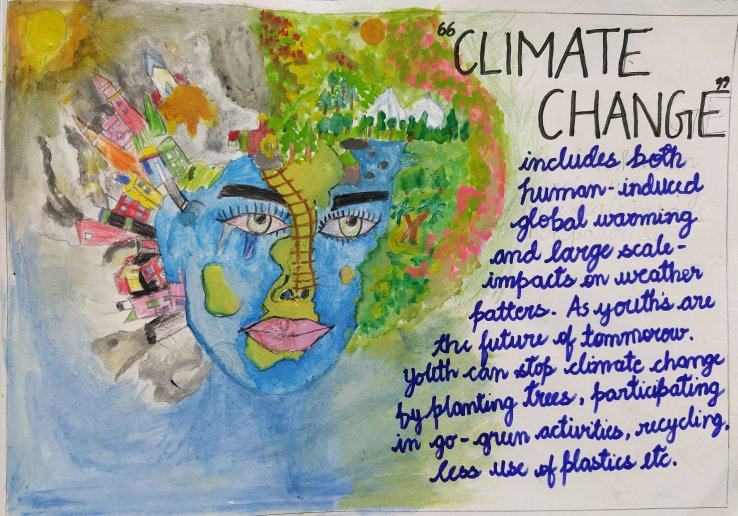 "CLIMATE
CHANGE"
includes both
human-induced
global warming
and large scale-
impacts on weather
patters. As youth's are
the future of tommorow.
Youth can stop climate change
by planting trees, participating
in go-green activities, recycling,
less use of plastics etc.